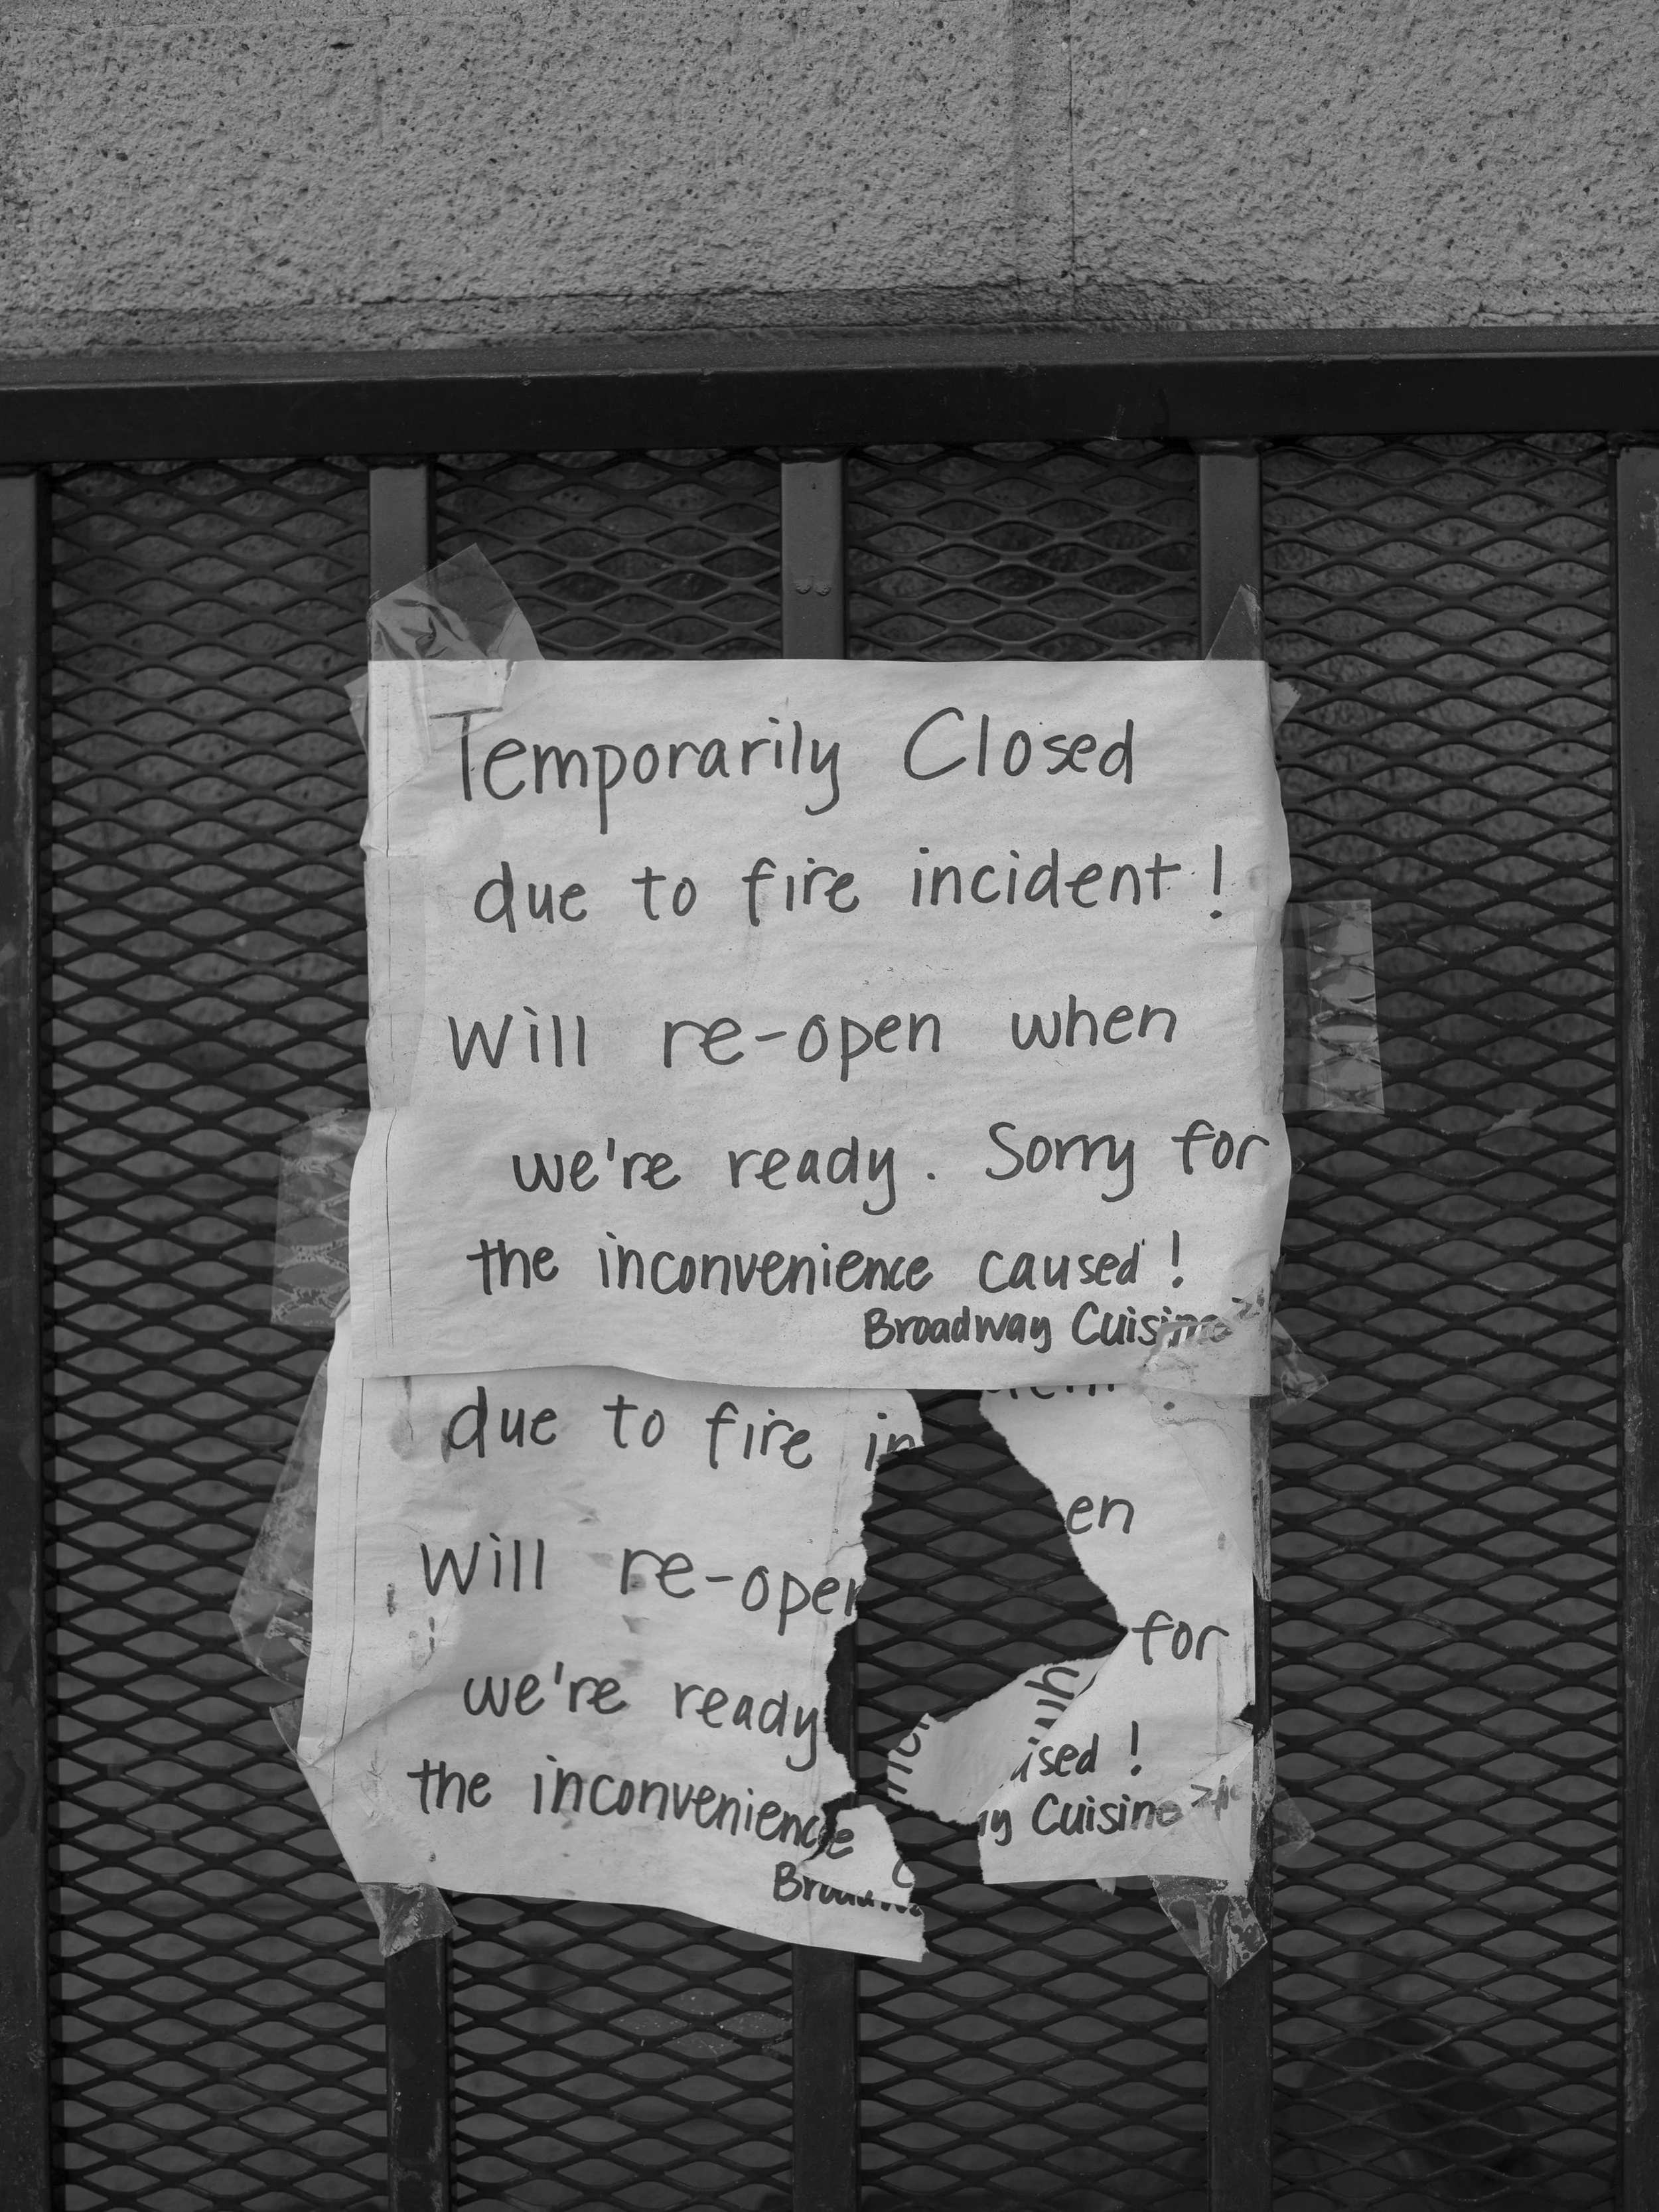 Temporarily Closed
due to fire incident!
Will re-open when
we're ready. Sorry for
the inconvenience caused!
Broadway Cuisine
due to fire in
en
Will re-open
for
we're ready
ised!
the inconvenience
ay Cuisine